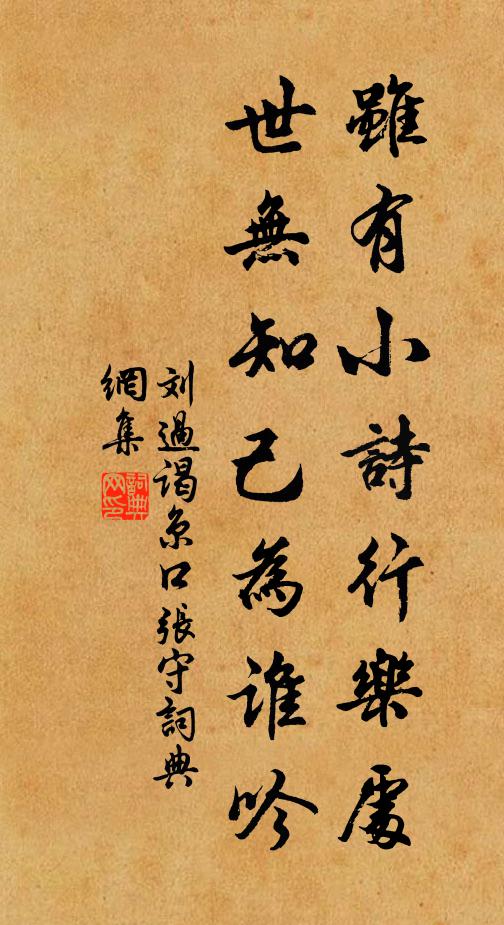 雖有小詩行樂處
世無知己為誰吟
刘過謁京口張守詞典
網集
詞典
网印